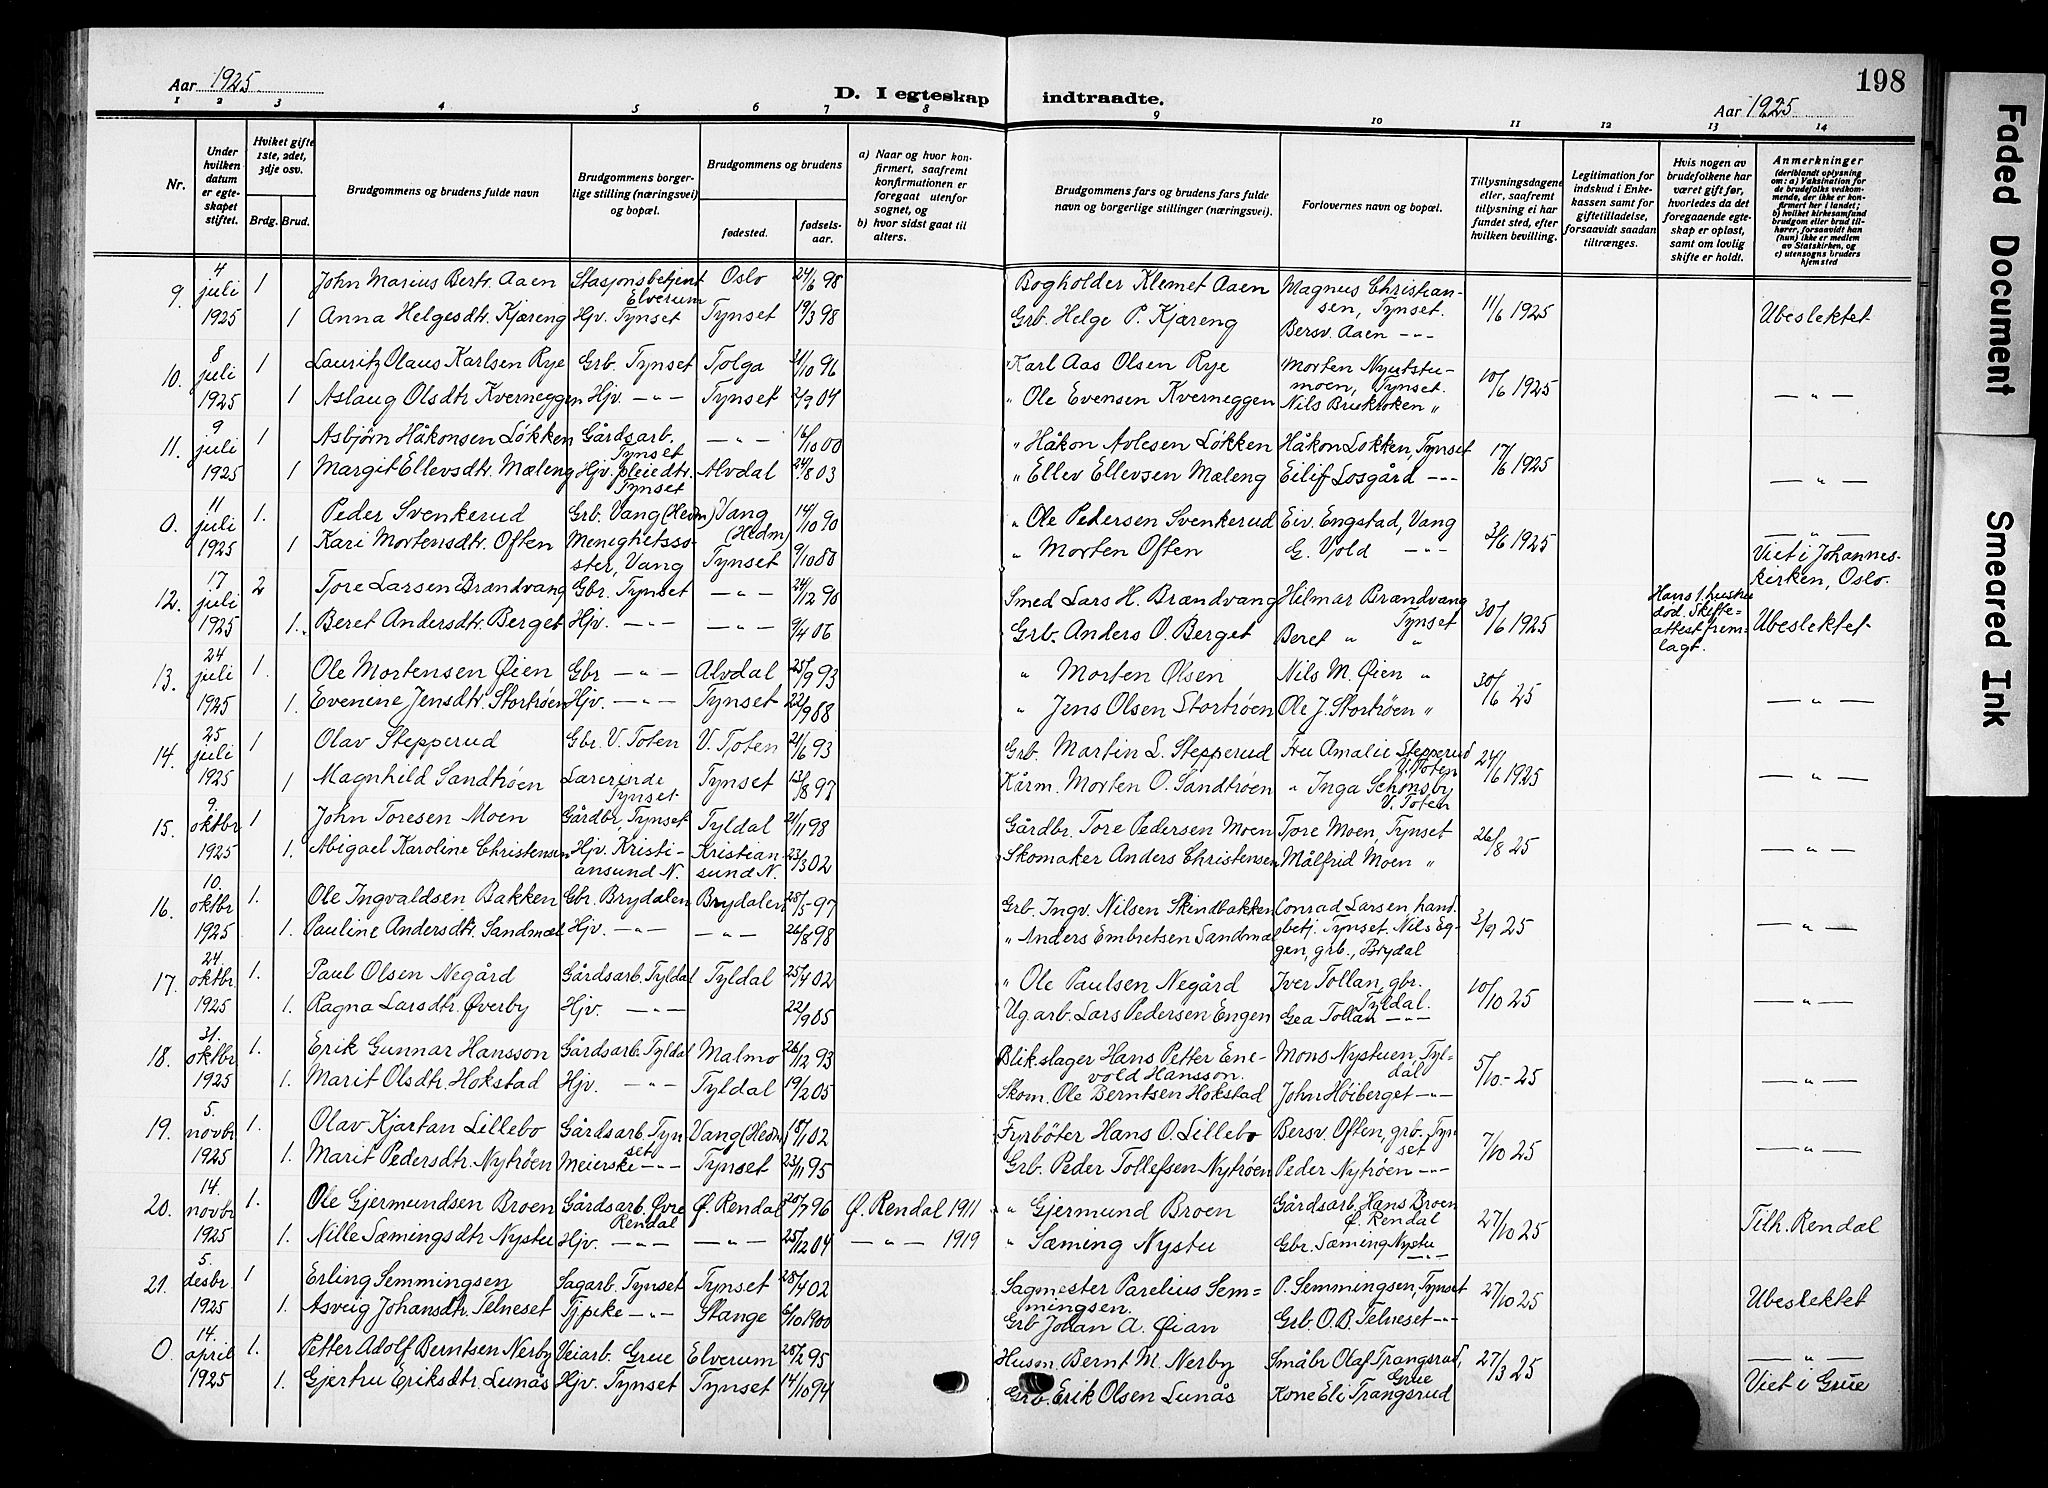 198
Aar 1925.
D. I egteskap indtraadte.
Aar 1925
1 2 3 4 5 6 7 8 9 10 11 12 13 14
Nr.
Under hvilken datum er egteskapet stiftet.
Hviket gifte 1ste, 2det, 3dje osv.
Brdg. Brud.
Brudgommens og brudens fulde navn
Brudgommens borgerlige stilling (næringsvei) og bopæl.
Brudgommens og brudens
fødested.
fødselsaar.
a) Naar og hvor konfirmert, saafremt konfirmationen er foregaat utenfor sognet, og
b) hvor sidst gaat til alters.
Brudgommens fars og brudens fars fulde navn og borgerlige stillinger (næringsvei).
Forlovernes navn og bopæl.
Tillysningsdagene eller, saafremt tillysning ei har fundet sted, efter hvilken bevilling.
Legitimation for indskud i Enkekassen samt for giftetilladelse, forsaavidt saadan tiltrænges.
Hvis nogen av brudefolkene har været gift før, hvorledes da det foregaaende egteskap er opløst, samt om lovlig skifte er holdt.
Anmerkninger (deriblandt oplysning om: a) Vaksination for de brudefolks vedkommende, der ikke er konfirmert her i landet; b) hvilket kirkesamfund brudgom eller brud tilhører, forsaavidt han (hun) ikke er medlem av Statskirken, og c) utensogns bruders hjemsted
9. 4 juli 1925 1 John Marius Bertr. Aaen Stasjonsbetjent Elverum Oslo 24/6 98 Bogholder Klemet Aaen Magnus Christiansen, Tynset. 11/6 1925
1 Anna Helgesdtr. Kjæreng Hjv. Tynset Tynset 19/3 98 Grb. Helge P. Kjæreng Bersv. Aaen -"- Ubeslektet
10. 8 juli 1925 1 Lauritz Olaus Karlsen Rye Grb. Tynset Tolga 31/10 96 " Karl Aas Olsen Rye Morten Nyutstumoen, Tynset. 10/6 1925
1 Aslaug Olsdtr. Kverneggen Hjv. -"- Tynset 2/9 04 " Ole Evensen Kverneggen Nils Brukroken " -"-
11. 9 juli 1925 1 Asbjørn Håkonsen Løkken Gårdsarb. Tynset -"- 16/10 00 " Håkon Avlesen Løkken Håkon Løkken, Tynset 17/6 1925
1 Margit Ellevsdtr. Mæleng Hjv. pleiedtr. Tynset Alvdal 24/8 03 " Ellev Ellevsen Mæleng Eilif Losgård -"- -"-
0. 11 juli 1925 1. Peder Svenkerud Grb. Vang (Hedm) Vang (Hedm) 14/10 90 " Ole Pedersen Svenkerud Eiv. Engstad, Vang 3/6 1925
1 Kari Mortensdtr. Often Menighetssøster, Vang Tynset 9/10 80 " Morten Often G. Vold -"- -"- Viet i Johanneskirken, Oslo.
12. 17 juli 1925 2 Tore Larsen Brændvang Gbr. Tynset -"- 24/12 90 Smed Lars H. Brændvang Hilmar Brændvang Tynset 30/6 1925 Hans 1. hustru død. Skifteattest fremlagt.
1. Beret Andersdtr. Berget Hjv. -"- -"- 9/4 06 Grb. Anders O. Berget Beret " " Ubeslektet
13. 24 juli 1925 1. Ole Mortensen Øien Gbr -"- Alvdal 25/9 93 " Morten Olsen Nils M. Øien " 30/6 25
1. Evenine Jensdtr. Stortrøen Hjv. -"- Tynset 22/9 88 " Jens Olsen Stortrøen Ole J. Stortrøen " -"-
14. 25 juli 1925 1 Olav Stepperud Gbr. V. Toten V. Toten 21/6 93 Grb. Martin L. Stepperud Fru Amalie Stepperud V. Toten 24/6 1925
1 Magnhild Sandtrøen Lærerinde Tynset Tynset 13/8 97 Kårm. Morten O. Sandtrøen " Inga Schønsby V. Toten -"-
15. 9. oktbr 1925 1 John Toresen Moen Gårdbr, Tynset Tyldal 21/11 98 Gårdbr. Tore Pedersen Moen Tore Moen, Tynset 26/8 25
1. Abigael Karoline Christensen Hjv. Kristiansund N. Kristiansund N. 23/3 02 Skomaker Anders Christensen Målfrid Moen " -"-
16. 10. oktbr 1925 1. Ole Ingvaldsen Bakken Gbr. Brydalen Brydalen 28/5-97 Grb. Ingv. Nilsen Skindbakken Conrad Larsen, handbetj. Tynset. 3/9 25
1. Pauline Andersdtr. Sandmæl Hjv. -"- -"- 26/8 98 " Anders Embretsen Sandmæl Nils Eggen, grb., Brydal -"-
17. 24. oktbr 1925 1. Paul Olsen Negård Gårdsarb. Tyldal Tyldal 25/4 02 " Ole Paulsen Negård Iver Tollan, gbr. Tyldal. 10/10 25
1. Ragna Larsdtr. Øverby Hjv. -"- 22/9 05 Ug.arb. Lars Pedersen Engen Gea Tollan -"- -"-
18. 31. oktbr 1925 1. Erik Gunnar Hansson Gårdsarb. Tyldal Malmø 26/12 93 Blikslager Hans Petter Enevold Hansson. Mons Nystuen, Tyldal 5/10-25
1. Marit Olsdtr. Hokstad Hjv. -"- Tyldal 19/2 05 Skom. Ole Berntsen Hokstad John Høiberget -"- -"-
19. 5. novbr 1925 1. Olav Kjartan Lillebo Gårdsarb. Tynset Vang (Hedm) 18/7 02 Fyrbøter Hans O. Lillebo Bersv. Often, grb. Tynset 7/10 25
1. Marit Pedersdtr. Nytrøen Meierske -"- Tynset 23/11 95 Grb. Peder Tollefsen Nytrøen Peder Nytrøen -"- -"-
20. 14. novbr 1925 1. Ole Gjermundsen Broen Gårdsarb. Øvre Rendal Ø. Rendal 20/7 96 Ø. Rendal 1911 " Gjermund Broen Gårdsarb. Hans Broen Ø. Rendal 27/10 25
1. Nille Sæmingsdtr Nystu Hjv. -"- -"- 25/12 04 -"- 1919 " Sæming Nystu Gbr. Sæming Nystu -"- Tilh. Rendal
21. 5. desbr. 1925 1 Erling Semmingsen Sagarb. Tynset Tynset 28/4 02 Sagmester Parelius Semmingsen. P. Semmingsen, Tynset 27/10 25
1. Asveig Johansdtr. Telneset Tjpike -"- Stange 6/10 1900 Grb Johan A. Øian Grb. O.B. Telneset -"- Ubeslektet
0. 14. april 1925 1. Petter Adolf Berntsen Nerby Veiarb. Grue Elverum 28/2 95 Husm. Bernt M. Nerby Småbr Olaf Trangsrud, Grue 27/3 25 -"-
1. Gjertru Eriksdtr. Lunås Hjv. Tynset Tynset 14/10 94 Grb. Erik Olsen Lunås Kone Eli Trangsrud Viet i Grue
Faded Document
Smeared Ink